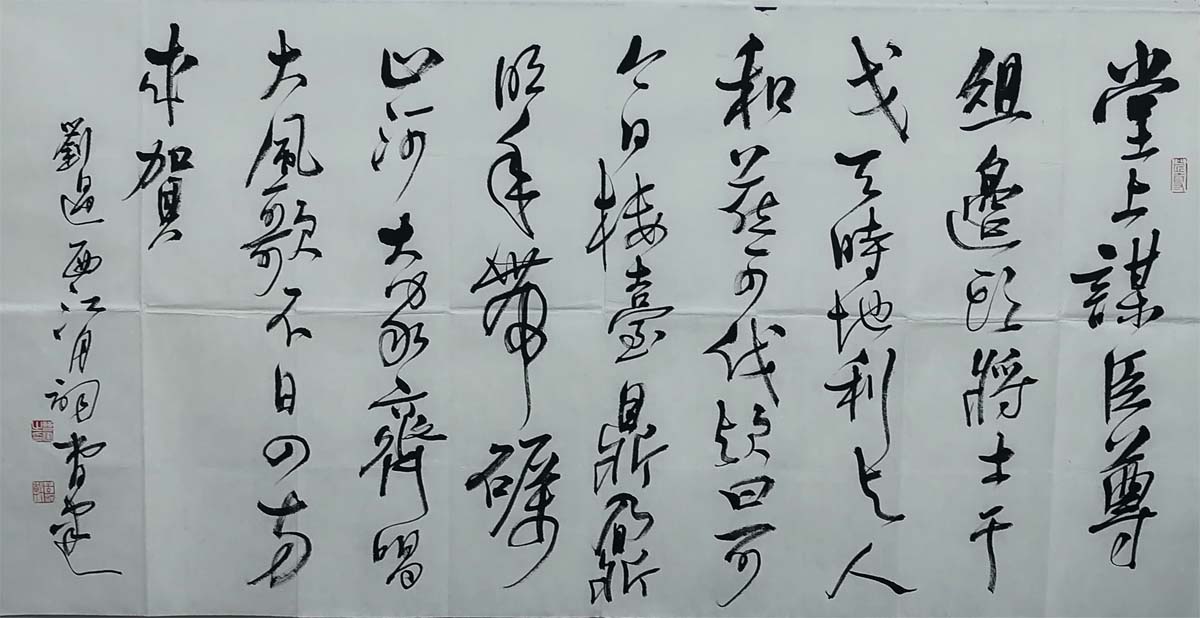 堂上謀臣尊
俎邊頭將士干
戈天時地利与人
和燕可伐欤曰可
今日楼臺鼎鼐
明年帶礪
山河大家齊唱
大風歌不日四方
来賀
劉過西江月詞